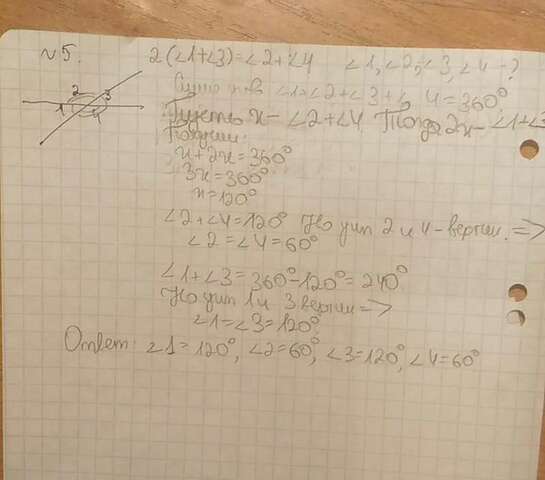 №5. 2(∠1+∠3)=∠2+∠4 ∠1,∠2,∠3,∠4 -?
2 3
1 4
∠1+∠2+∠3+∠4=360°
Пусть x - ∠2+∠4, Тогда 2x - ∠1+∠3
Получим:
x+2x=360°
3x=360°
x=120°
∠2+∠4=120° Но угл 2 и 4 - вертик. =>
∠2=∠4=60°
∠1+∠3=360°-120°=240°
Но угл 1 и 3 вертик =>
∠1=∠3=120°
Ответ: ∠1=120°, ∠2=60°, ∠3=120°, ∠4=60°